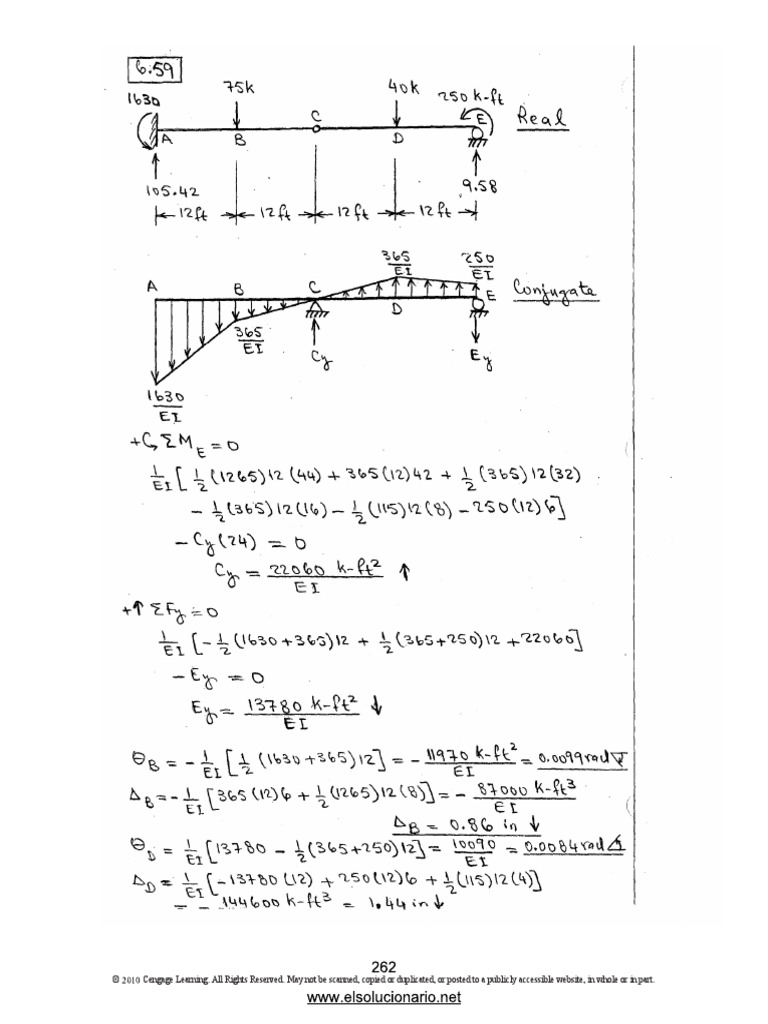 6.59
75k 40k 250 k-ft
1630 C E Real
A B D
105.42 9.58
12ft 12ft 12ft 12ft
365/EI 250/EI
A B C D E Conjugate
365/EI Cy Ey
1630/EI
+↶ ΣM_E = 0
1/EI [ 1/2 (1265)12(44) + 365(12)42 + 1/2 (365)12(32)
- 1/2 (365)12(16) - 1/2 (115)12(8) - 250(12)6]
- Cy(24) = 0
Cy = 22060 k-ft²/EI ↑
+↑ ΣFy = 0
1/EI [- 1/2 (1630+365)12 + 1/2 (365+250)12 + 22060]
- Ey = 0
Ey = 13780 k-ft²/EI ↓
θ_B = - 1/EI [ 1/2 (1630+365)12] = - 11970 k-ft²/EI = 0.0099 rad
Δ_B = - 1/EI [365(12)6 + 1/2 (1265)12(8)] = - 87000 k-ft³/EI
Δ_B = 0.86 in ↓
θ_D = 1/EI [13780 - 1/2 (365+250)12] = 10090/EI = 0.0084 rad
Δ_D = 1/EI [-13780(12) + 250(12)6 + 1/2 (115)12(4)]
= - 144600 k-ft³ = 1.44 in ↓
262
© 2010 Cengage Learning. All Rights Reserved. May not be scanned, copied or duplicated, or posted to a publicly accessible website, in whole or in part.
www.elsolucionario.net